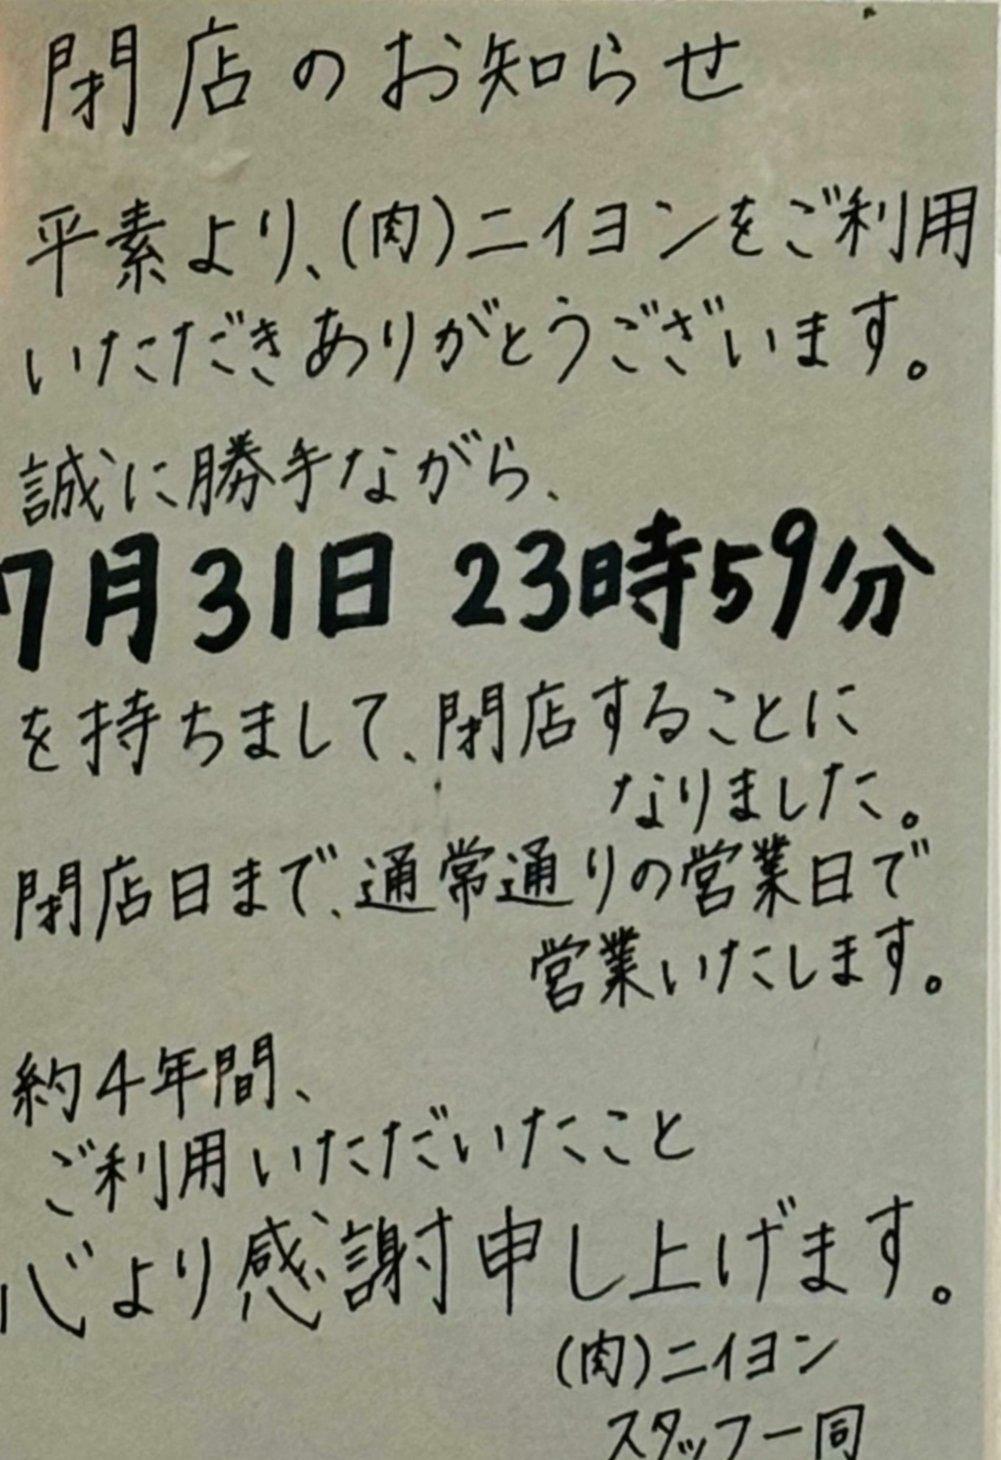 閉店のお知らせ
平素より、(肉)ニイヨンをご利用
いただきありがとうございます。
誠に勝手ながら、
7月31日 23時59分
を持ちまして、閉店することに
なりました。
閉店日まで、通常通りの営業日で
営業いたします。
約4年間、
ご利用いただいたこと
心より感謝申し上げます。
(肉)ニイヨン
スタッフ一同